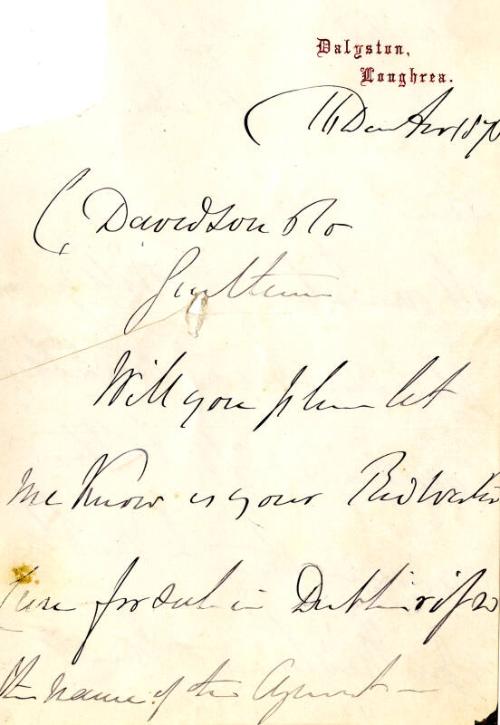 Dalyston,
Loughrea.
Davidson & Co
Gentlemen
Will you please let
me know is your
for sale in Dublin & if so
the name of the Agent